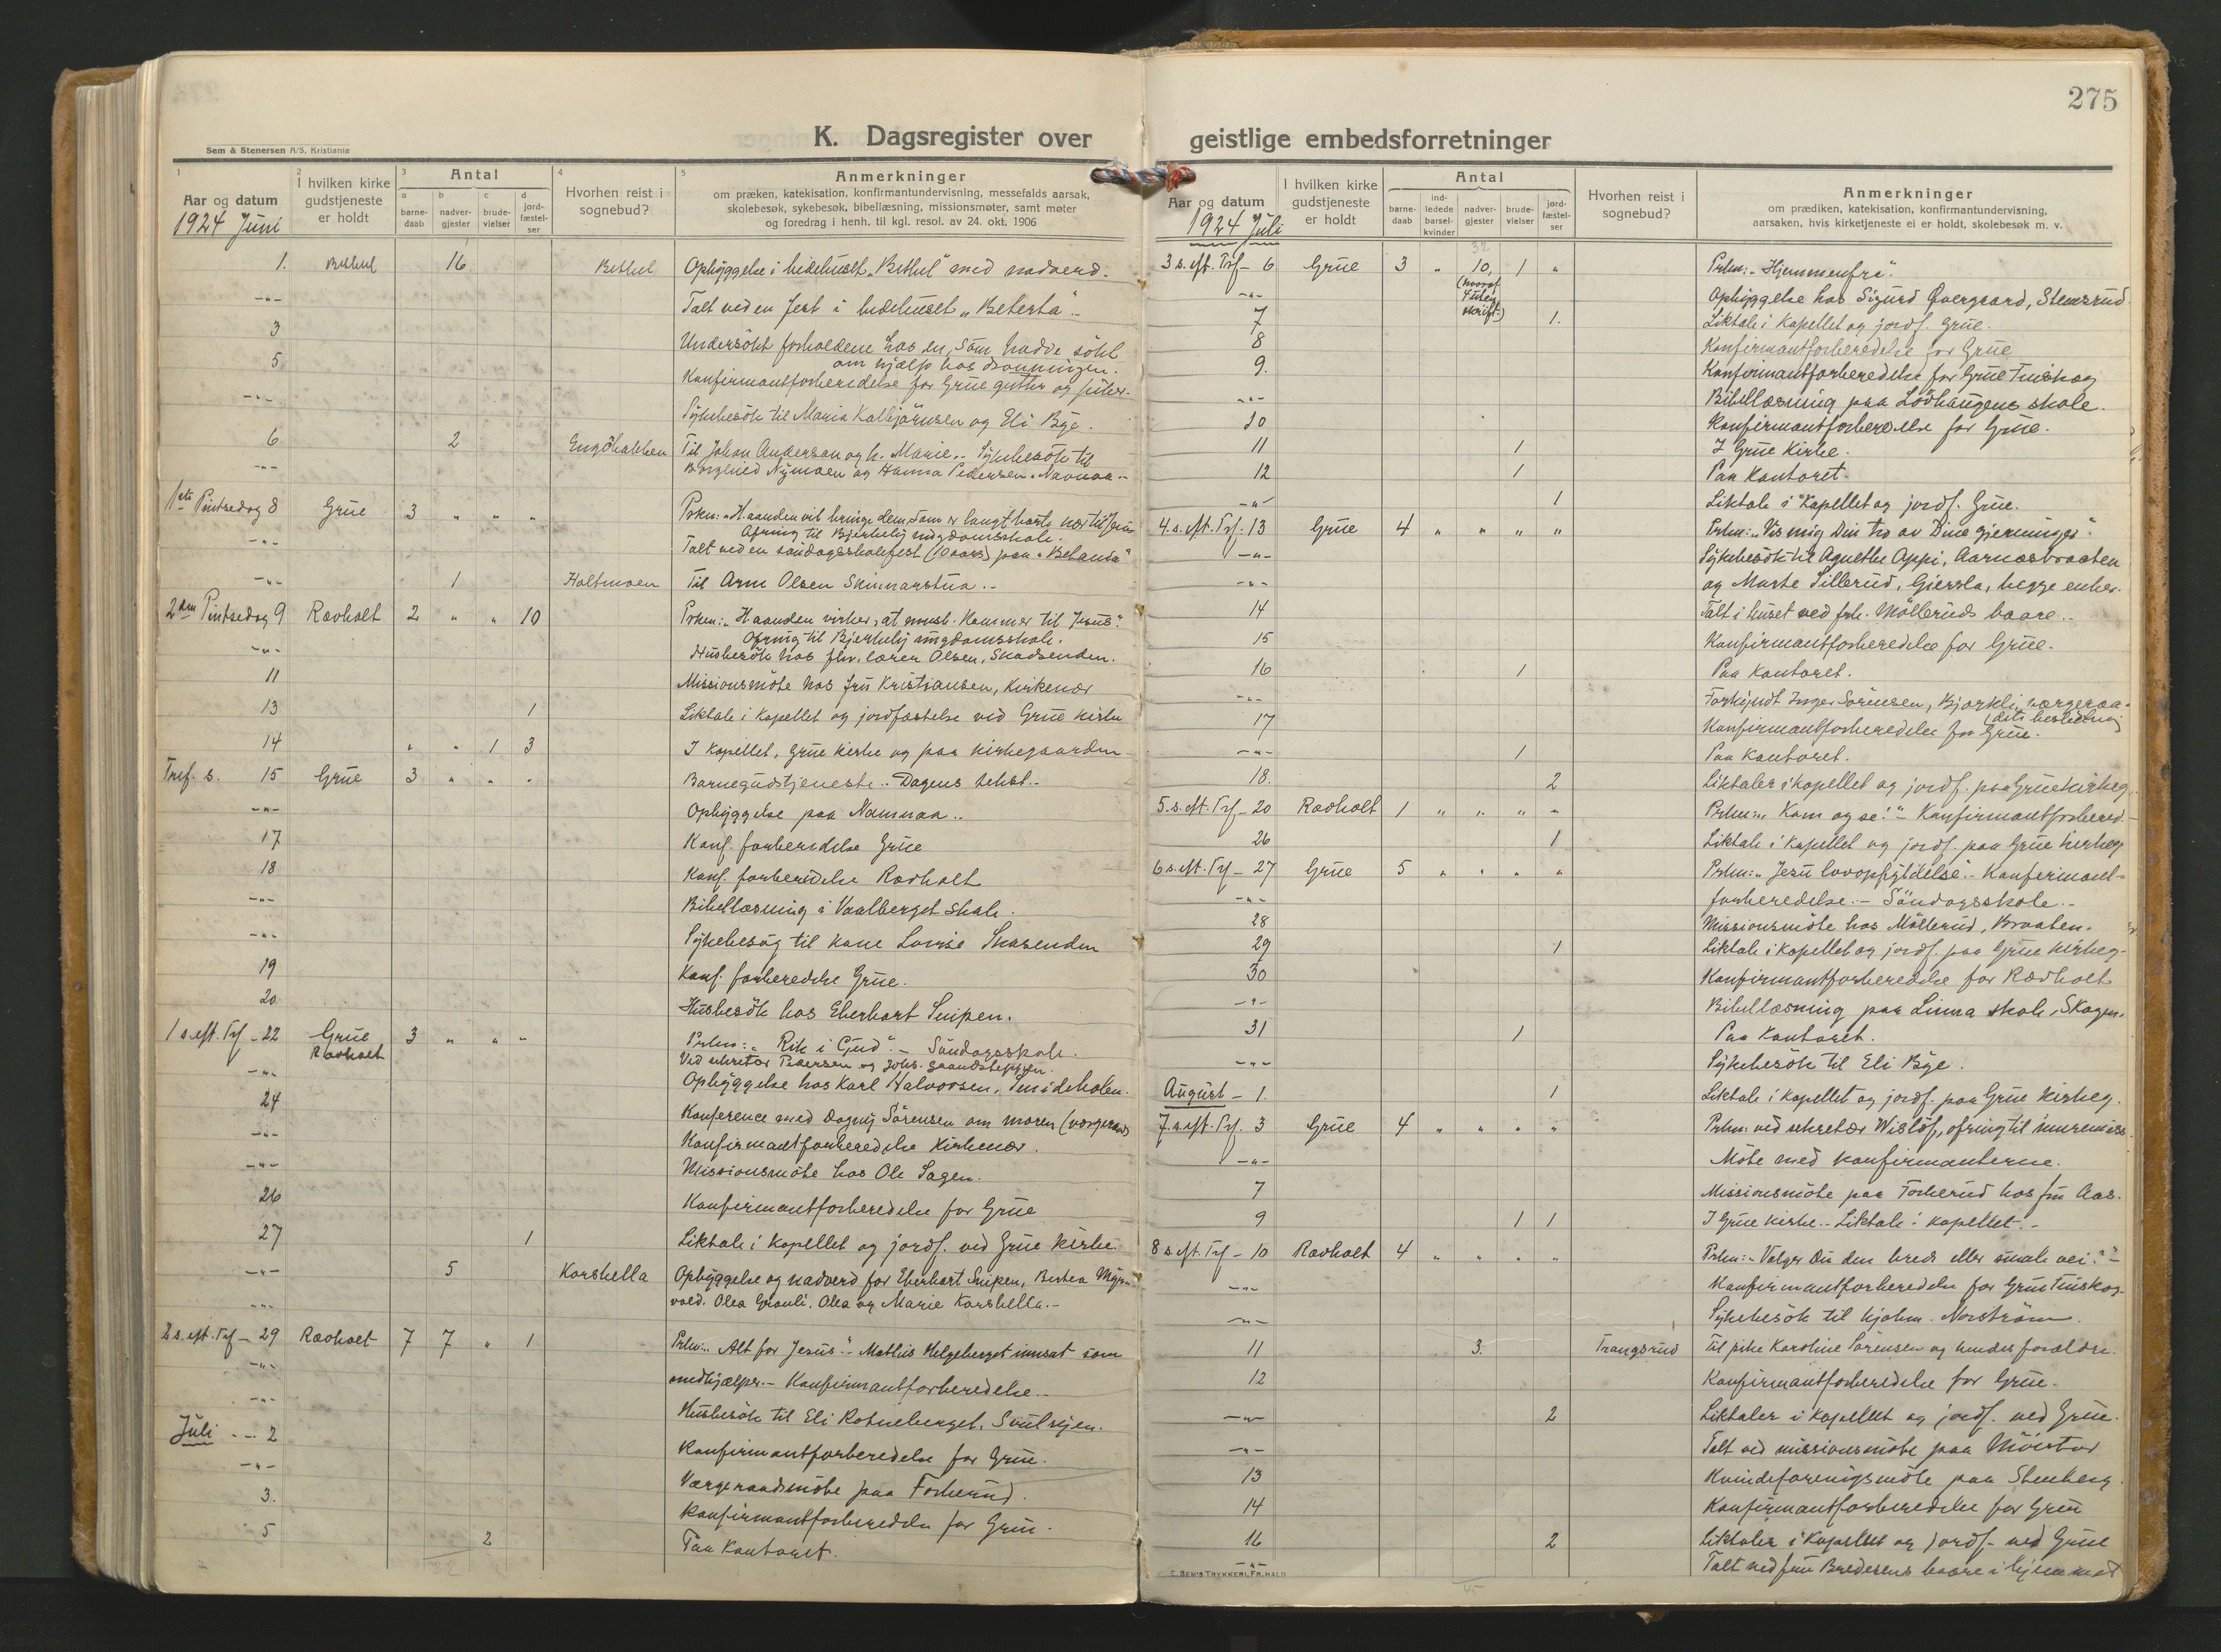 275
K. Dagsregister over geistlige embedsforretninger
Sem & Stenersen A/S, Kristiania
1 Aar og datum
2 I hvilken kirke gudstjeneste er holdt
3 Antal
a barne-daab b nadver-gjester c brude-vielser d jord-fæstel-ser
4 Hvorhen reist i sognebud?
5 Anmerkninger
om præken, katekisation, konfirmantundervisning, messefalds aarsak,
skolebesøk, sykebesøk, bibellæsning, missionsmøter, samt møter
og foredrag i henh. til kgl. resol. av 24. okt. 1906
1924 Juni
1. Bethel 16 Bethel Opbyggelse i bedehuset „Bethel" med nadverd.
-"- Talt ved en fest i bedehuset „Betesta".-
3 Undersökt forholdene hos en, som hadde sökt
om hjælp hos dronningen.
5 Konfirmantforberedelse for Grue gutter og piker.
-"- Sykebesök til Maria Kolbjörnsen og Eli Bye.
6 2 Til Johan Anderson og h. Marie.- Sykebesök til
-"- Nymoen og Hanna Pedersen. Navnaa.-
1ste Pintsedag 8 Grue 3 " " " Prken: „H. aanden vil bringe dem, som er langt borte nær til Jesus
Ofring til Bjerkely ungdomsskole.
-"- Talt ved en söndagsskolefest (10 aars) paa „Betania"
-"- 1 Holtmoen Til Arne Olsen Skinnarstua.-
2den Pintsedag 9 Rovholt 2 " " 10 Prken: „H. aanden virker, at mnsk. kommer til Jesus".
Ofring til Bjerkely ungdomsskole.
-"- Husbesök hos fhv. lærer Olsen, Skadsenden.
11 Missionsmöte hos fru Kristiansen, Kirkenær
13 1 Liktale i kapellet og jordfæstelse ved Grue kirke
14 " " 1 3 I kapellet, Grue kirke og paa kirkegaarden-
Tref. s. 15 Grue 3 " " " Barnegudstjeneste.- Dagens tekst.-
-"- Opbyggelse paa Namnaa..
17 Konf. forberedelse Grue
18 Konf. forberedelse Rovholt
-"- Bibellæsning i Vaalberget skole.
-"- Sykebesög til kone Lovise Skasenden
19 Konf. forberedelse Grue.
20 Husbesök hos Eberhart Snipen.
1 s. eft. Trf - 22 Grue 3 " " " Prken: „Rik i Gud".- Söndagsskole.
Rovholt Ved sekretær Pedersen og Johs.
-"- Opbyggelse hos Karl Halvorsen, Smideholen.
24 Konference med Dagny Sörensen om moren (værgeraad)
-"- Konfirmantforberedelse Kirkenær.
-"- Missionsmöte hos Ole Sagen.
26 Konfirmantforberedelse for Grue
27 1 Liktale i kapellet og jordf. ved Grue kirke.
-"- 5 Korshella Opbyggelse og nadverd for Eberhart Snipen, Berthea Myr-
-"- vold. Olea Granli. Olea og Marie Korshella.-
2 s. eft. Trf - 29 Rovholt 7 7 " 1 Prken: „Alt for Jesus".- Mathis Helgeberget innsat som
-"- medhjælper.- Konfirmantforberedelse.-
-"- Husbesök til Eli Rotneberget,
Juli - 2 Konfirmantforberedelse for Grue.
-"- Værgeraadsmöte paa Forberud.
3. Konfirmantforberedelse for Grue.
5 2 Paa Kontoret.
32
Aar og datum
I hvilken kirke gudstjeneste er holdt
Antal
barne-daab ind-ledede barsel-kvinder nadver-gjester brude-vielser jord-fæstel-ser
Hvorhen reist i sognebud?
Anmerkninger
om prædiken, katekisation, konfirmantundervisning,
aarsaken, hvis kirketjeneste ei er holdt, skolebesøk m. v.
1924 Juli
32
3 s. eft. Trf - 6 Grue 3 " 10, 1 " Prken: „Hjemmenfra".
(hvoraf
-"- Opbyggelse hos Sigurd Övergaard, Stemsrud
skrift.)
7 1. Liktale i kapellet og jordf. Grue.
8 Konfirmantforberedelse for Grue
9. Konfirmantforberedelse for Grue Finskog
-"- Bibellæsning paa Lövhaugens skole.
10 Konfirmantforberedelse for Grue.
11 1 I Grue Kirke.
12 1 Paa Kontoret.
-"- 1 Liktale i kapellet og jordf. Grue.
4. s. eft. Trf. 13 Grue 4 " " " " Prken: „Vis mig Din tro av Dine gjerninger".
-"- Sykebesök til Agnethe Oppi, Aarnæsbraaten
-"- og Marte Sillerud, Gjersla, begge enker.
14 Talt i huset ved frk. Mölleruds baare.-
15 Konfirmantforberedelse for Grue.
16 1 Paa kontoret.
-"- Forkyndt Inger Sörensen, Bjorkli, værgeraa-
(dets beslutning
17 Konfirmantforberedelse for Grue.
-"- 1 Paa kontoret.
18. 2 Liktaler i kapellet og jordf. paa Grue kirkeg.
5. s. eft. Trf - 20 Rovholt 1 " " " " Prken: „Kom og se!"- Konfirmantforbered.-
26 1 Liktale i kapellet og jordf. paa Grue kirkeg
6 s. eft. Trf - 27 Grue 5 " " " " Prken: „Jesu lovopfyldelse".- Konfirmant-
-"- forberedelse.- Söndagsskole.-
28 Missionsmöte hos Möllerud, Braaten.
29 1 Liktale i kapellet og jordf. paa Grue kirkeg.
30 Konfirmantforberedelse for Rovholt
-"- Bibellæsning paa Linna skole, Skogen.
31 1 Paa Kontoret.
-"- Sykebesök til Eli Bye.
August - 1. 1 Liktale i kapellet og jordf. paa Grue kirkeg.
7. s. eft. Trf. 3 Grue 4 " " " " Prken: ved sekretær Wislöf, ofring til indremiss.
-"- Möte med konfirmanterne.
7 Missionsmöte paa Forberud hos fru Aas.
9 1 1 I Grue kirke.- Liktale i kapellet.-
8 s. eft. Trf - 10 Rovholt 4 " " " " Prken: „Velger Du den brede eller smale vei?"-
-"- Konfirmantforberedelse for Grue Finskog.
-"- Sykebesök til Norström.
11 3. Trangsrud Til pike Karoline Sörensen og hendes forældre.
12 Konfirmantforberedelse for Grue.
-"- 2 Liktaler i kapellet og jordf. ved Grue.
-"- Talt ved missionsmöte paa
13 Kvindeforenigsmöte paa Stenberg.
14 Konfirmantforberedelse for Grue
16 2 Liktaler i kapellet og jordf- ved Grue
-"- Talt ved fru Bredesens baare i hjemmet
E. Sem's Trykkeri, Fr.hald